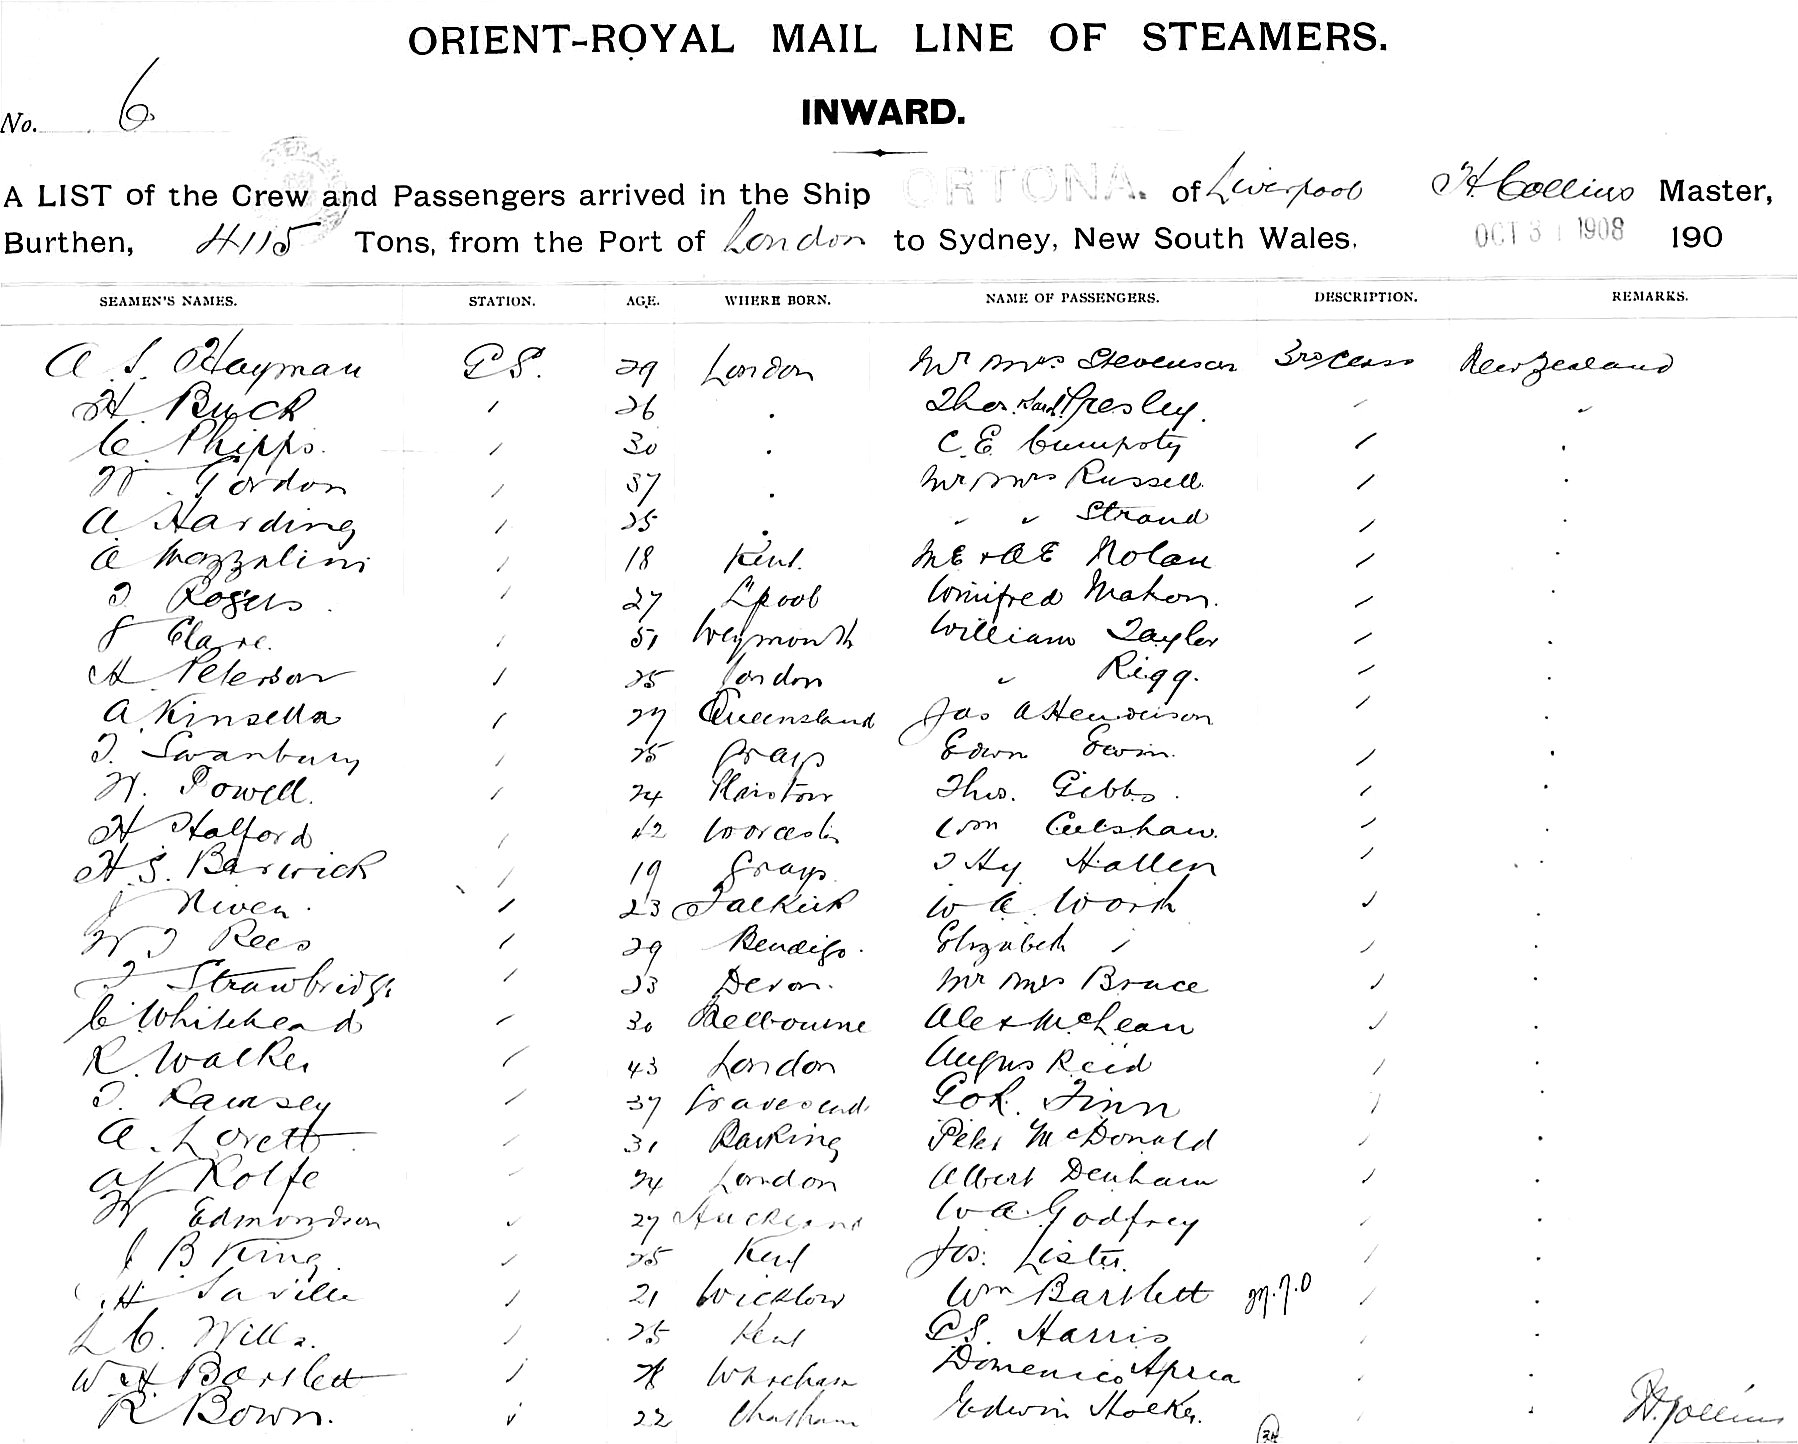 ORIENT-ROYAL MAIL LINE OF STEAMERS.
No. 6
INWARD.
A LIST of the Crew and Passengers arrived in the Ship ORTONA. of Liverpool H Collins Master,
Burthen, 4115 Tons, from the Port of London to Sydney, New South Wales, OCT 31 1908 190
SEAMEN'S NAMES. STATION. AGE. WHERE BORN. NAME OF PASSENGERS. DESCRIPTION. REMARKS.
A. S. Hayman G.S. 29 London Mr Mrs Stevenson 3rd Class New Zealand
H Buck 26 Thos. Presley.
C. Phipps. 30 C. E.
W. Gordon 37 Mr Mrs Russell
A Harding 25 Strand
A Mazzalini 18 Kent. M E + A E Nolan
T Rogers 27 L'pool Winifred Mahon.
Clare. 51 Weymouth William Taylor
H Peterson 25 London Rigg.
A Kinsella 27 Queensland Jas A Henderson
T. Swanbury 25 Grays Edwn
W. Powell. 24 Plaistow Thos. Gibbs.
H Halford 42 Worcester Wm Culshaw.
H. S. Barwick 19 Grays T Hy Hallen
J Niven. 23 Falkirk W A. Worth
W J Rees 29 Bendigo. Elizabeth
T Strawbridge 23 Devon. Mr Mrs Bruce
C Whitehead 30 Melbourne Alex McLean
R. Walker 43 London Angus Reid
T. Ramsey 37 Gravesend. Finn
A. Lovett 31 Barking Peter McDonald
A J Rolfe 24 London Albert Denham
W Edmondson 27 Auckland W A Godfrey
J B King 25 Kent Jos. Lister.
H Saville 21 Wicklow Wm Bartlett
L C. Wills. 25 Kent C S. Harris
W H Bartlett Whareham Domenico Aprea
R Bown. 22 Chatham Edwin
H. Collins